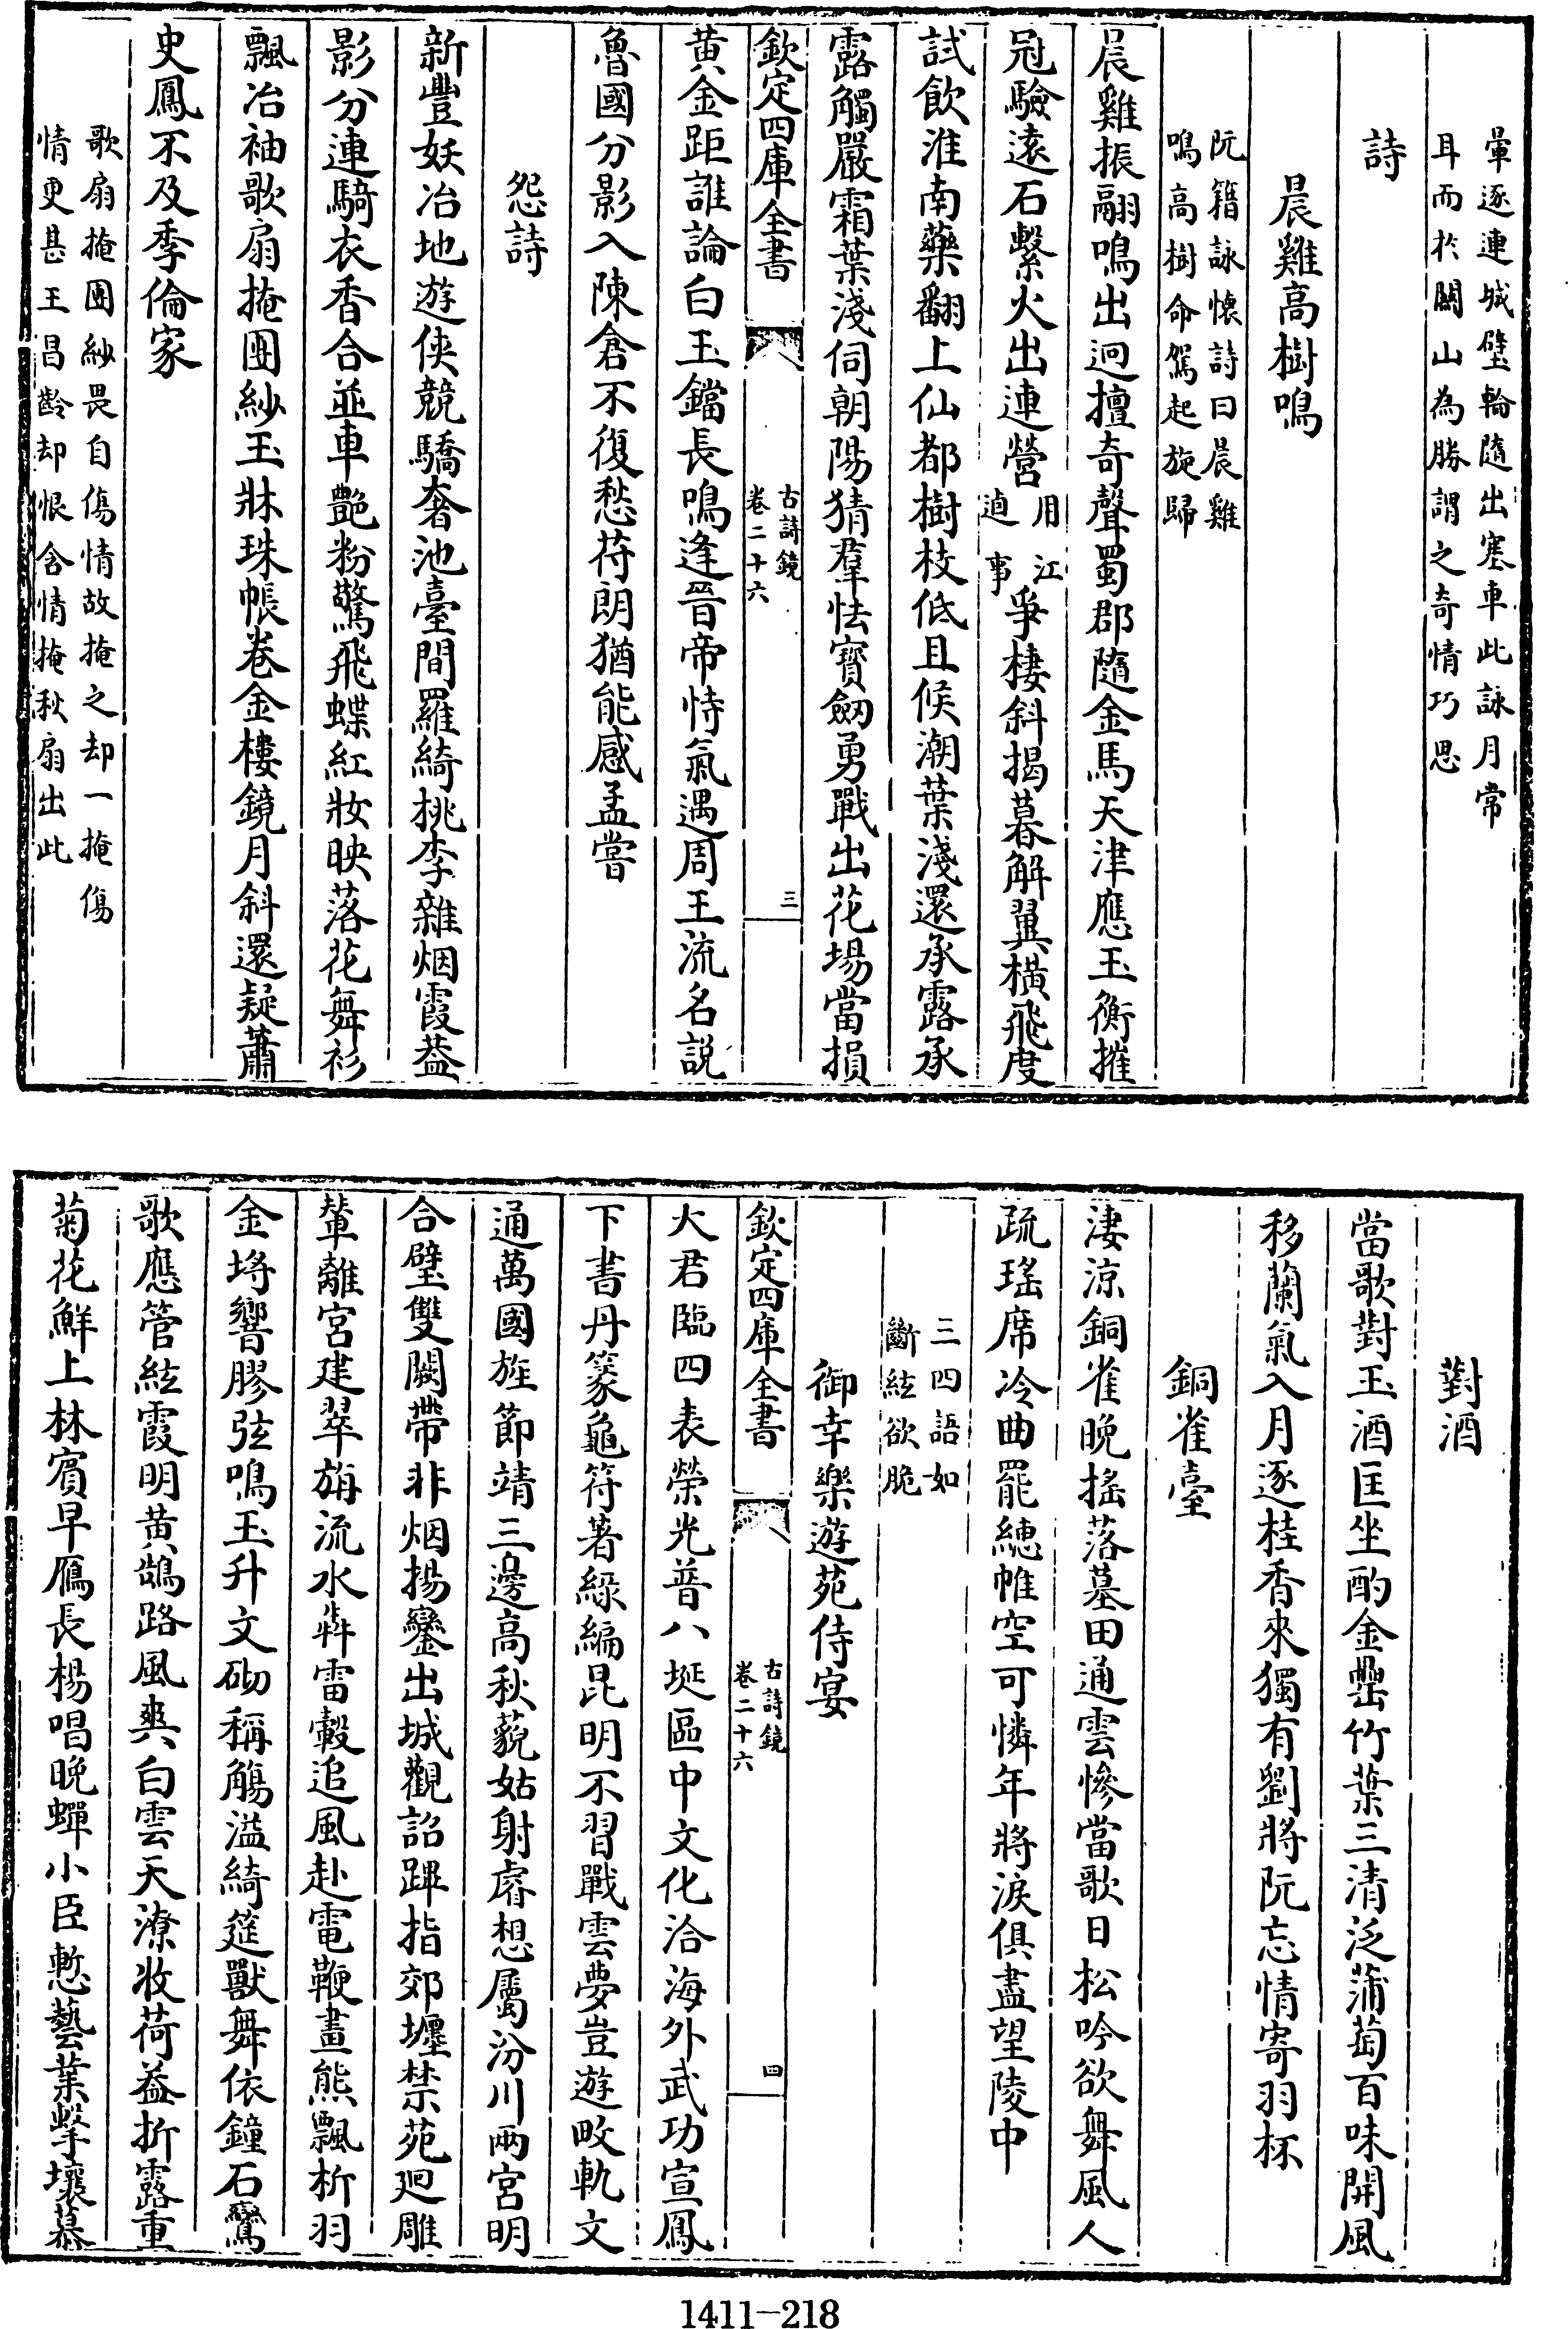 暈逐連城璧輪隨出塞車此詠月常
耳而於關山為勝謂之奇情巧思
詩
晨雞高樹鳴
阮籍詠懐詩曰晨雞
鳴高樹命駕起旋歸
晨雞振翮鳴出迥擅奇聲蜀郡隨金馬天津應玉衡摧
冠驗遠石繫火出連營
用江
逌事
爭棲斜揭暮解翼横飛度
試飲淮南藥翻上仙都樹枝低且候潮葉淺還承露承
露觸嚴霜葉淺伺朝陽猜羣怯寳劒勇戰出花場當損
欽定四庫全書
古詩鏡
卷二十六
三
黄金距誰論白玉鐺長鳴逢晉帝恃氣遇周王流名説
魯國分影入陳倉不復愁苻朗猶能感孟嘗
怨詩
新豐妖冶地遊俠競驕奢池臺間羅綺桃李雜烟霞葢
影分連騎衣香合並車艶粉驚飛蝶紅妝映落花舞衫
飄冶袖歌扇掩團紗玉牀珠帳卷金樓鏡月斜還疑蕭
史鳳不及季倫家
歌扇掩團紗畏自傷情故掩之却一掩傷
情更甚王昌齡却恨含情掩秋扇出此
對酒
當歌對玉酒匡坐酌金罍竹葉三清泛蒲萄百味開風
移蘭氣入月逐桂香來獨有劉將阮忘情寄羽杯
銅雀臺
淒涼銅雀晚搖落墓田通雲慘當歌日松吟欲舞風人
疏瑤席冷曲罷繐帷空可憐年將淚俱盡望陵中
三四語如
斷絃欲脆
御幸樂遊苑侍宴
欽定四庫全書
古詩鏡
卷二十六
四
大君臨四表榮光普八埏區中文化洽海外武功宣鳳
下書丹篆龜符著綠編昆明不習戰雲夢豈遊畋軌文
通萬國旌節靖三邊高秋藐姑射睿想屬汾川兩宮明
合璧雙闕帶非烟揚鑾出城觀詔蹕指郊壥禁苑廻雕
輦離宮建翠旃流水犇雷轂追風赴電鞭畫熊飄析羽
金埒響膠弦鳴玉升文砌稱觴溢綺筵獸舞依鐘石鸞
歌應管絃霞明黄鵠路風爽白雲天潦收荷葢折露重
菊花鮮上林賓早雁長楊唱晚蟬小臣慙藝業擊壤慕
1411-218